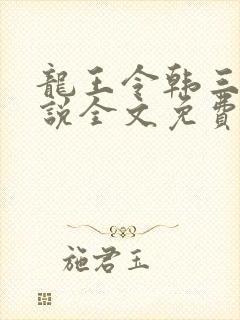 龍王令韩三
說全文免費
施君玉